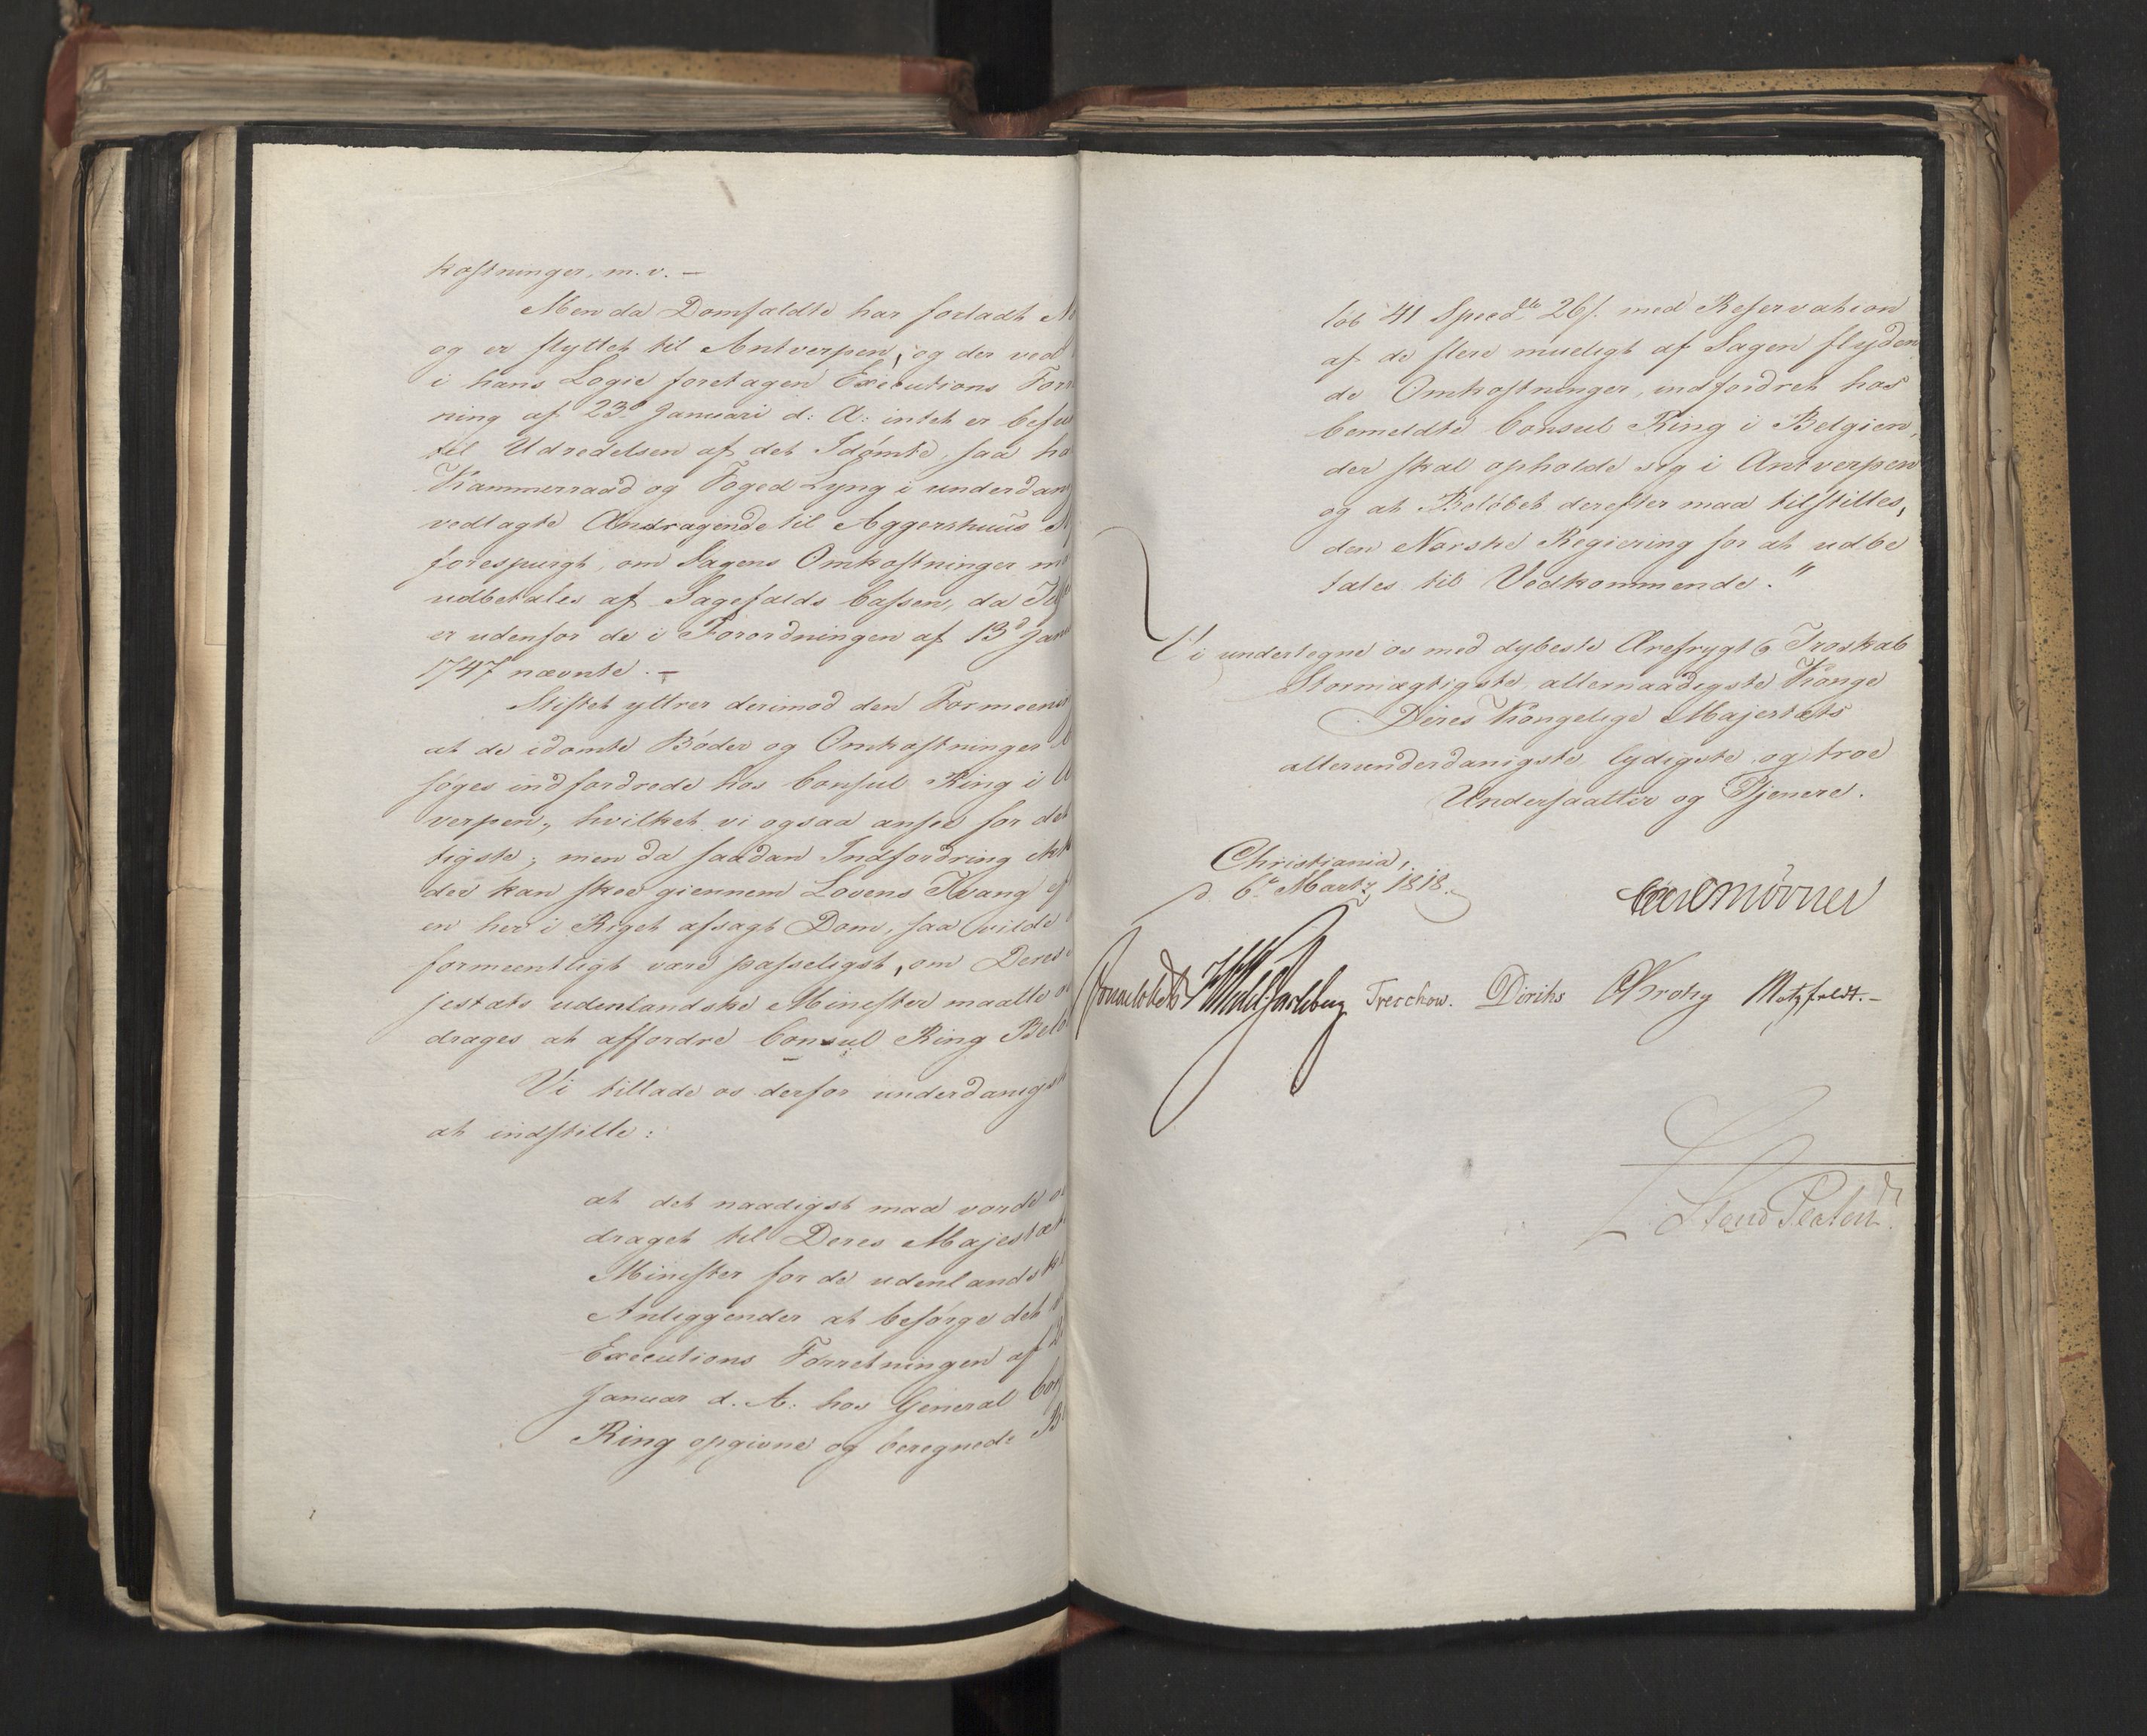 kostninger, m. v. —
Men da Domfældte har forladt
og er flyttet til Antverpen, og der ved
i hans Logie foretagen Executions For
ning af 23d Januari d: A: intet er befu
til Udredelsen af det Idömte, saa ha
Kammerraad og Foged Lyng i underdan
vedlagte Andragende til Aggershuus
forespurgt, om Sagens Omkostninger m
udbetales af Sagefalds Cassen, da
er udenfor de i Forordningen af 13d Jan
1747 nævnte. —
Stiftet yttrer derimod den Formeeni
at de idömte Böder og Omkostninger
söges indfordrede hos Consul Ring i
verpen, hvilket vi ogsaa ansee for det
tigste; men da saadan Indfordring
der kan skee giennem Lovens Tvang
en her i Riget afsagt Dom, saa vilde
formeentligt være passeligst, om Deres
jestæts udenlandske Minister maatte
drages at affordre Consul Ring Belö
Vi tillade os derfor underdanigst
at indstille:
at det naadigst maa vorde
draget til Deres Majestæt
Minister for de udenlandsk
Anliggender at besörge det
Executions Forretningen af
Januar d. A. hos General Con
Ring opgivne og beregnede
löb 41 Specdle 26s. med Reservation
af de flere mueligt af Sagen flyden
de Omkostninger, indfordret hos
bemeldte Consul Ring i Belgien,
der skal opholde sig i Antverpen
og at Belöbet derefter maa tilstilles,
den Norske Regiering for at udbe
tales til Vedkommende."
Vi undertegne os med dybeste Ærefrygt & Troskab
Stormægtigste, allernaadigste Konge
Deres Kongelige Majestæts
allerunderdanigste, lydigste og troe
Undersaatter og Tjenere.
Christiania,
d. 6te Martz 1818.
Carl Mörner
Sommerhielm HWedel Jarlsberg Treschow. Diriks Krohg Motzfeldt. —